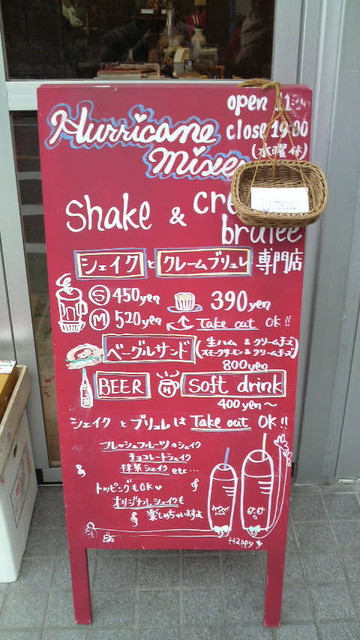 open 11:
Hurricane close 19:00
Mixer (水曜休)
shake & cre
brulee
シェイク と クレームブリュレ 専門店
S 450yen 390yen
M 520yen Take out OK!!
ベーグルサンド (生ハム & クリームチーズ
スモークサーモン & クリームチーズ)
800yen
BEER soft drink
400yen〜
シェイク と ブリュレは Take out OK!!
フレッシュフルーツのシェイク
チョコレートシェイク
抹茶シェイク etc...
トッピングもOK♥
オリジナルシェイクも
楽しめちゃいますよ
Happy